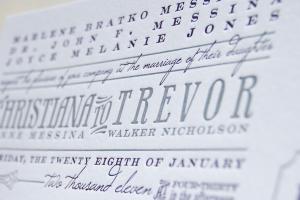 MARLENE BRATKO MESSINA
DR. JOHN F. MESSINA
JOYCE MELANIE JONES
request the pleasure of your company at the marriage of their daughter
CHRISTIANA to TREVOR
ANNE MESSINA WALKER NICHOLSON
FRIDAY, THE TWENTY EIGHTH OF JANUARY
two thousand eleven AT FOUR-THIRTY
in the afternoon